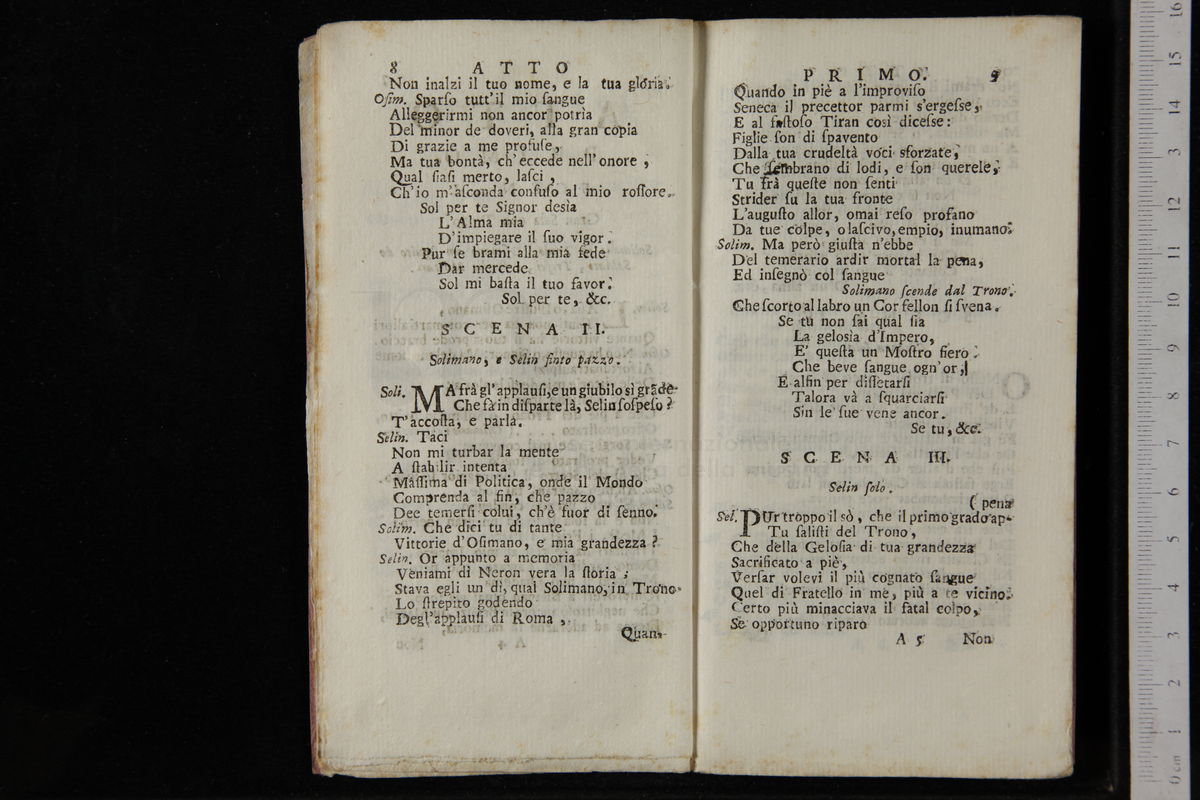 8 ATTO
Non inalzi il tuo nome, e la tua gloria.
Osim. Sparſo tutt'il mio ſangue
Alleggerirmi non ancor potria
Del minor de doveri, alla gran copia
Di grazie a me profuſe,
Ma tua bontà, ch'eccede nell'onore ,
Qual ſiaſi merto, laſci ,
Ch'io m'aſconda confuſo al mio roſſore.
Sol per te Signor desìa
L'Alma mia
D'impiegare il ſuo vigor.
Pur ſe brami alla mia fede
Dar mercede
Sol mi baſta il tuo favor.
Sol per te, &c.
SCENA II.
Solimano, e Selin finto pazzo.
Soli. MA frà gl'applauſi, e un giubilo sì grāde
Che fà in diſparte là, Selin ſoſpeſo ?
T'accoſta, e parla.
Selin. Taci
Non mi turbar la mente
A ſtabilir intenta
Maſſima di Politica, onde il Mondo
Comprenda al fin, che pazzo
Dee temerſi colui, ch'è fuor di ſenno.
Solim. Che dici tu di tante
Vittorie d'Oſimano, e mia grandezza ?
Selin. Or appunto a memoria
Veniami di Neron vera la ſtoria ;
Stava egli un dì, qual Solimano, in Trono
Lo ſtrepito godendo
Degl'applauſi di Roma ,
Quan-
PRIMO. 9
Quando in piè a l'improviſo
Seneca il precettor parmi s'ergeſse,
E al faſtoſo Tiran così diceſse:
Figlie ſon di ſpavento
Dalla tua crudeltà voci sforzate,
Che ſembrano di lodi, e ſon querele,
Tu frà queſte non ſenti
Strider ſu la tua fronte
L'auguſto allor, omai reſo profano
Da tue colpe, o laſcivo, empio, inumano.
Solim. Ma però giuſta n'ebbe
Del temerario ardir mortal la pena,
Ed inſegnò col ſangue
Solimano ſcende dal Trono.
Che ſcorto al labro un Cor fellon ſi ſvena.
Se tu non ſai qual ſia
La gelosìa d'Impero,
E' queſta un Moſtro fiero
Che beve ſangue ogn'or,
E alfin per diſſetarſi
Talora và a ſquarciarſi
Sin le ſue vene ancor.
Se tu, &c.
SCENA III.
Selin ſolo.
( pena
Sel. PUr troppo il sò, che il primo grado ap-
Tu ſaliſti del Trono,
Che della Geloſia di tua grandezza
Sacrificato a piè,
Verſar volevi il più cognato ſangue
Quel di Fratello in me, più a te vicino.
Certo più minacciava il fatal colpo,
Se opportuno riparo
A 5 Non
0 cm 1 2 3 4 5 6 7 8 9 10 11 12 13 14 15 16